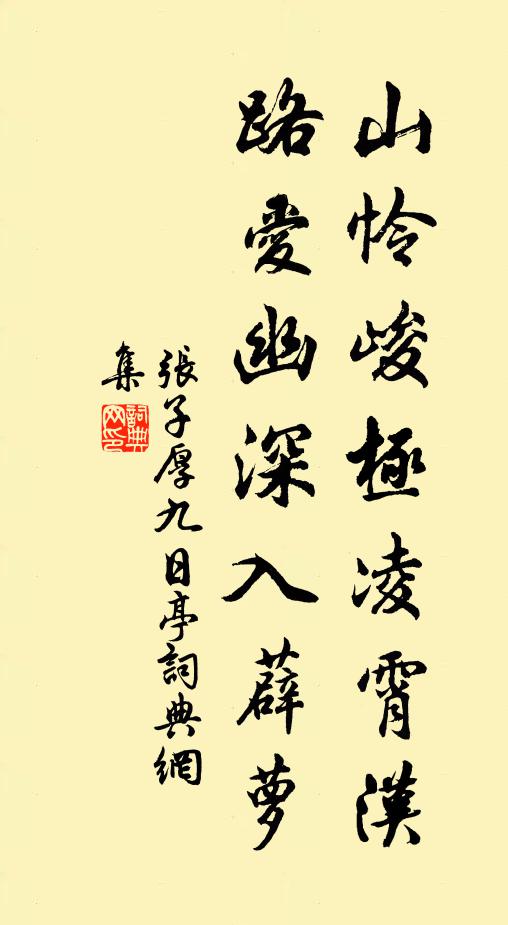 山怜峻極凌霄漢
路愛幽深入薜萝
張子厚九日亭詞典網
集
詞典
网印